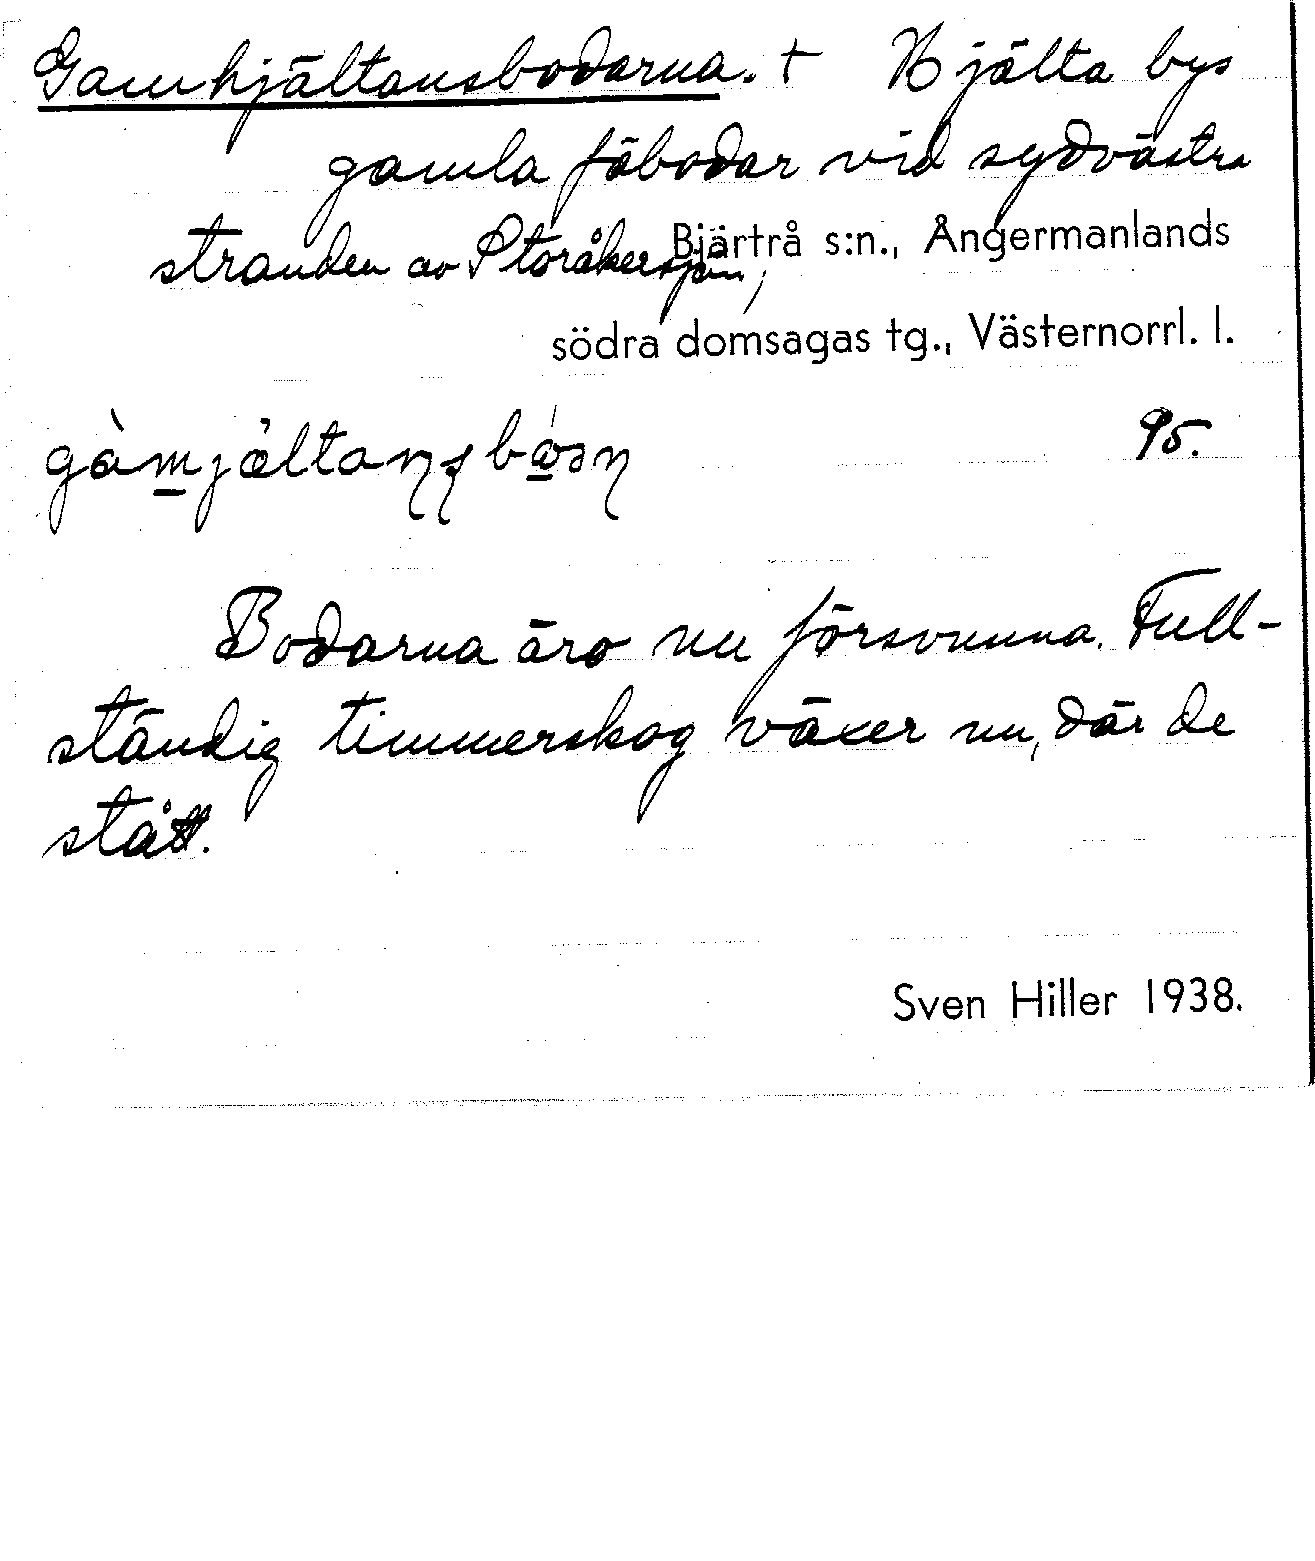 Gamhjältansbodarna. † Hjälta bys
gamla fäbodar vid sydvästra
stranden av Storåkersjön,
Bjärtrå s:n., Ångermanlands
södra domsagas tg., Västernorrl. l.
95.
Bodarna äro nu försvunna. Full-
ständig timmerskog växer nu, där de
stått.
Sven Hiller 1938.